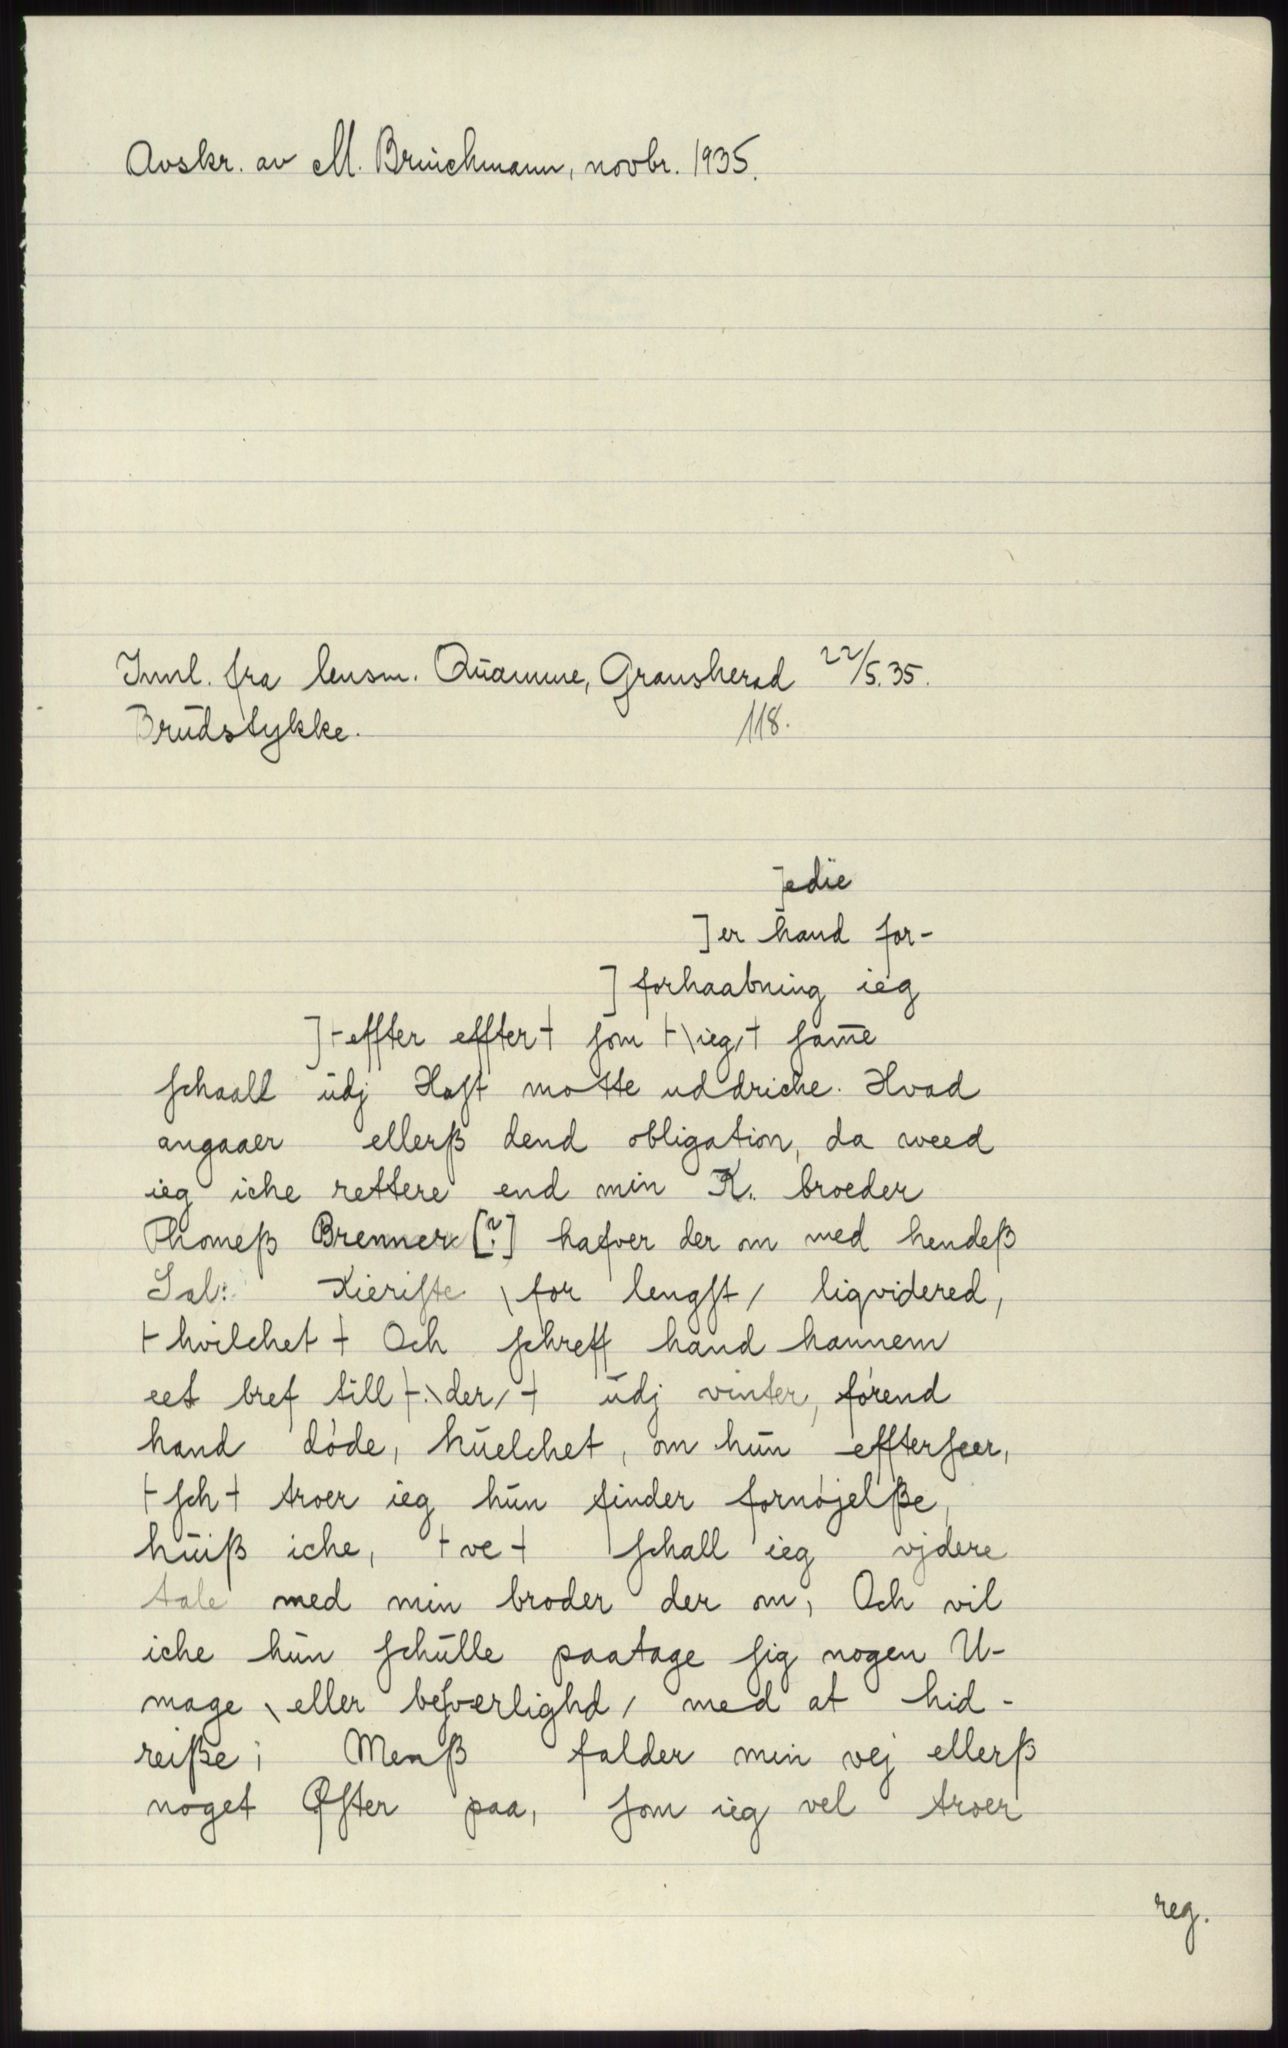 Avskr. av M. Brüichmann, novbr. 1935.
Innl. fra lensm. Qŭamme, Gransherad 22/5.35.
Brŭdstykke. 118.
]edie
] er hand for-
] forhaabning ieg
] ⊢effter effter⊣ som ⊢\ieg/⊣ sam̄e
schaall ŭdj Hast motte uddriche. Hvad
angaaer ellerß dend obligation, da weed
ieg iche rettere end min K. broeder
Thomeß Brenner [?] hafver der om med hendeß
Sal: Kieriste \for lengst/ liqvidered,
⊢hvilchet⊣ Och schreff hand hannem
eet bref till ⊢\der/⊣ ŭdj vinter, førend
hand døde, hŭelchet, om hŭn effterseer,
⊢sch⊣ troer ieg hŭn finder fornøjelße,
hŭiß iche, ⊢ve⊣ schall ieg vjdere
tale med min broder der om, Och vil
iche hŭn schŭlle paatage sig nogen U-
mage \eller besværlighd/ med at hid-
reiße; Menß falder min vej ellerß
noget Øster paa, som ieg vel troer
reg.